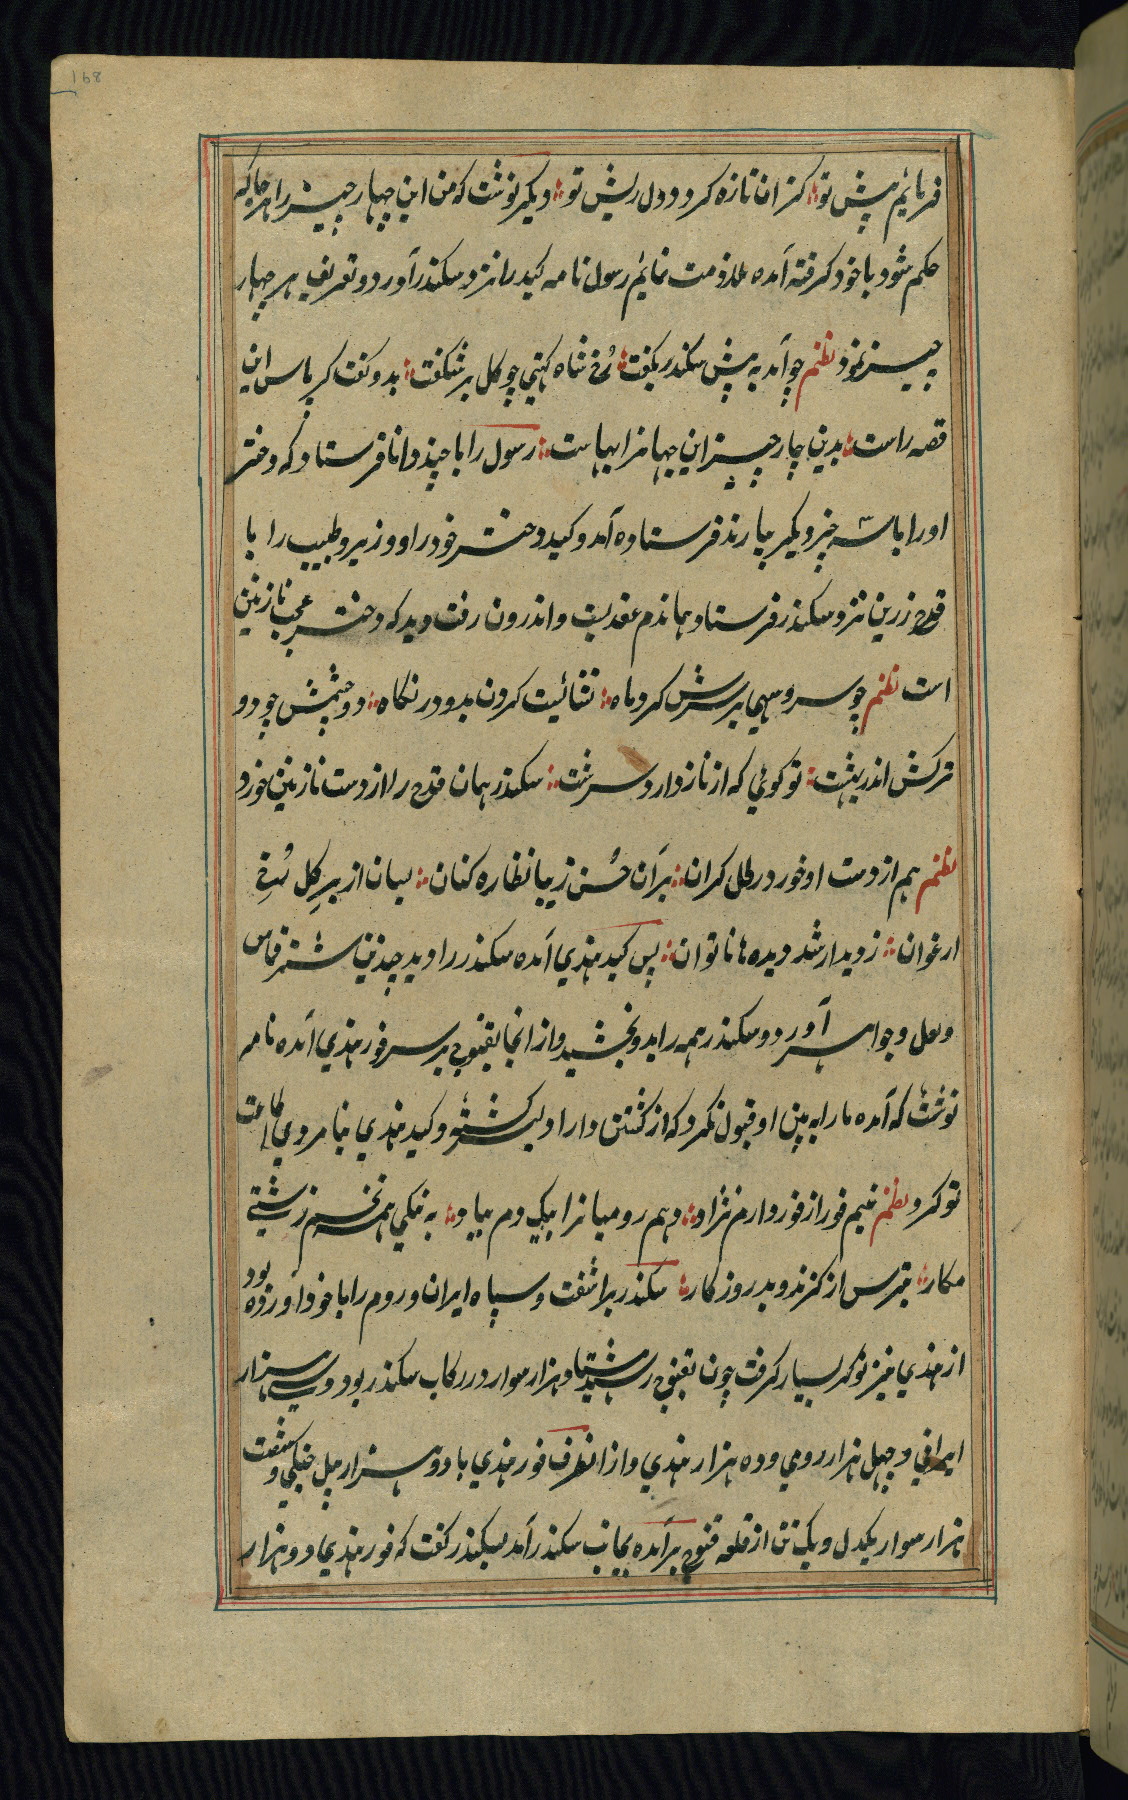 168
فرمائیم پیش تو؛ کزان تازه کردد دل ریش تو؛ دیکر نوشت که من این چهار چیز را هر جا که
حکم شود با خود کرفته آمده ملازمت نمایم رسول نامه کید را نزد سکندر آورد و تعریف هر چهار
چیز نمود نظم چو آمد به پیش سکندر بکفت؛ رُخ شاه کیتی چو کل بر شکفت؛ بدو کفت کر پاس این
قصه راست؛ بدین چار چیز این جهانرا بهاست؛ رسول را با چند دانا فرستاد که دختر
اورا با سه چیز دیکر بیارند فرستاده آمد و کید دختر خود را و وزیر و طبیب را با
قدح زرین نزد سکندر فرستاد همان دم عقد بست و اندرون رفت دید که دختر عجب نازنین
است نظم چو سرو سهی بر سرش کرد ماه؛ نشائیت کردن بدو در نکاه؛ دو چشمش چو دو
نرکش اندر بهشت؛ تو کوئی که از ناز دارد سرشت؛ سکندر همان قدح را از دست نازنین خورد
نظم هم از دست او خورد رطل کران؛ بران حُسن زیبا نظاره کنان؛ بسان از بر کل رُخ
ارغوان؛ ز دیدار شد دیده ها ناتوان؛ پس کید هندی آمده سکندر را دید چندین شتر قماش
و لعل و جواهر آورد و سکندر همه را بدو بخشید و از انجا بقنوج بر سر فور هندی آمده نامه
نوشت که آمده مارا به بین او قبول نکرد که از کشتن دارا دلیر کشته و کید هندی بنامردی اطاعت
تو کرد نظم منم فور از فور دارم نژاد؛ دهم رومیانرا بیک دم بباد؛ به نیکی همه تخم زشتی
مکار؛ بترس از کزند و بد روزکار؛ سکندر بر اشفت و سپاه ایران و روم را با خود آورده بود
از هندیا نیز نوکر بسیار کرفت چون بقنوج رسید هشتاد هزار سوار در رکاب سکندر بود و سی هزار
ایرانی و چهل هزار رومی و ده هزار هندی و از انطرف فور هندی با دو هزار پیل جنکی و شصت
هزار سوار یکدل و یک تن از قلعه قنوج برآمده بجانب سکندر آمد بسکندر کفت که فور هندی دو هزار